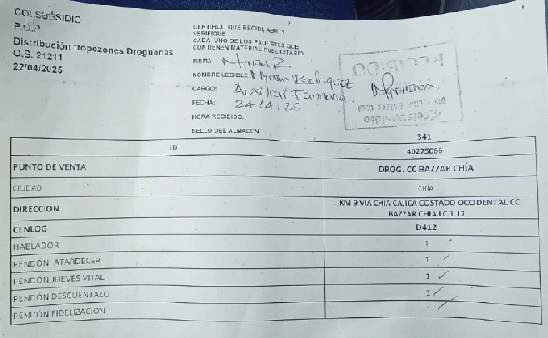 COLSUBSIDIO
P.O.P
Distribución Tropezones Droguerías
U.S. 21211
22/04/2025
CERTIFICO QUE RECIBI, ABRI Y
VERIFIQUE
CADA UNO DE LOS PAQUETES QUE
CONTIENEN MATERIAL PUBLICITARIO
FIRMA:
NOMBRE LEGIBLE:
CARGO: Auxiliar
FECHA: 24/4/25
HORA RECIBIDO:
SELLO DEL ALMACEN
RECIBIDO
Colsubsidio
341
ID 40275066
PUNTO DE VENTA DROG. CC BAZZAR CHÍA
CIUDAD CHÍA
DIRECCION KM 9 VIA CHIA CAJICA COSTADO OCCIDENTAL CC
BAZZAR CHIA LC 1 17
CENLOG D412
HABLADOR 1
PENDÓN ATARDECER 1
PENDÓN JUEVES VITAL 1
PENDÓN DESCUENTAZO 1
PENDÓN FIDELIZACION